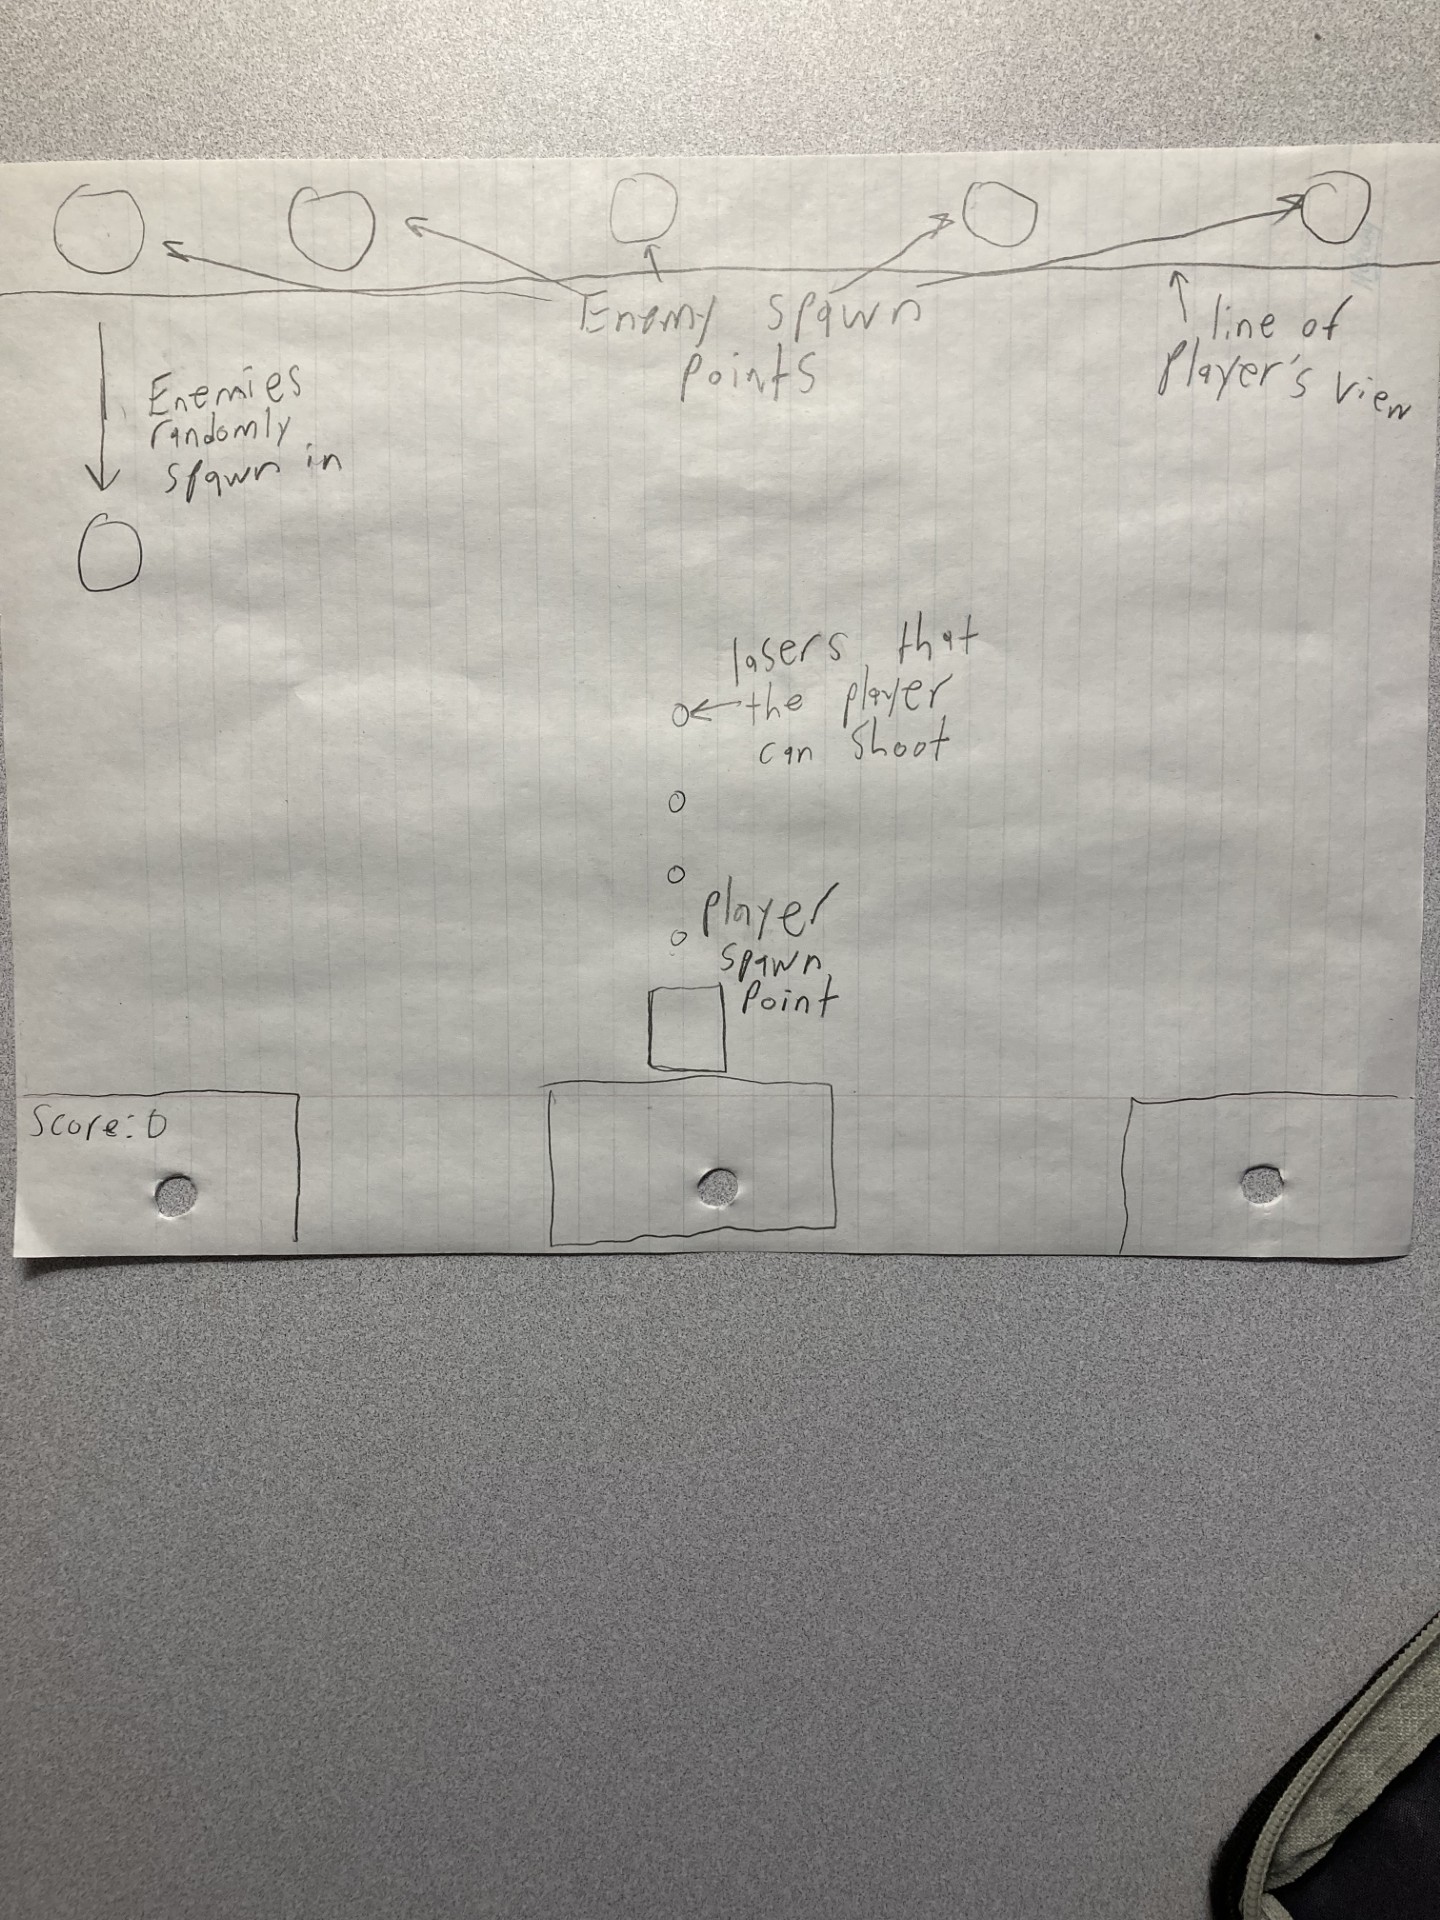 Enemy spawn
points
line of
Player's view
Enemies
randomly
spawn in
lasers that
the player
can shoot
player
spawn
point
Score: 0